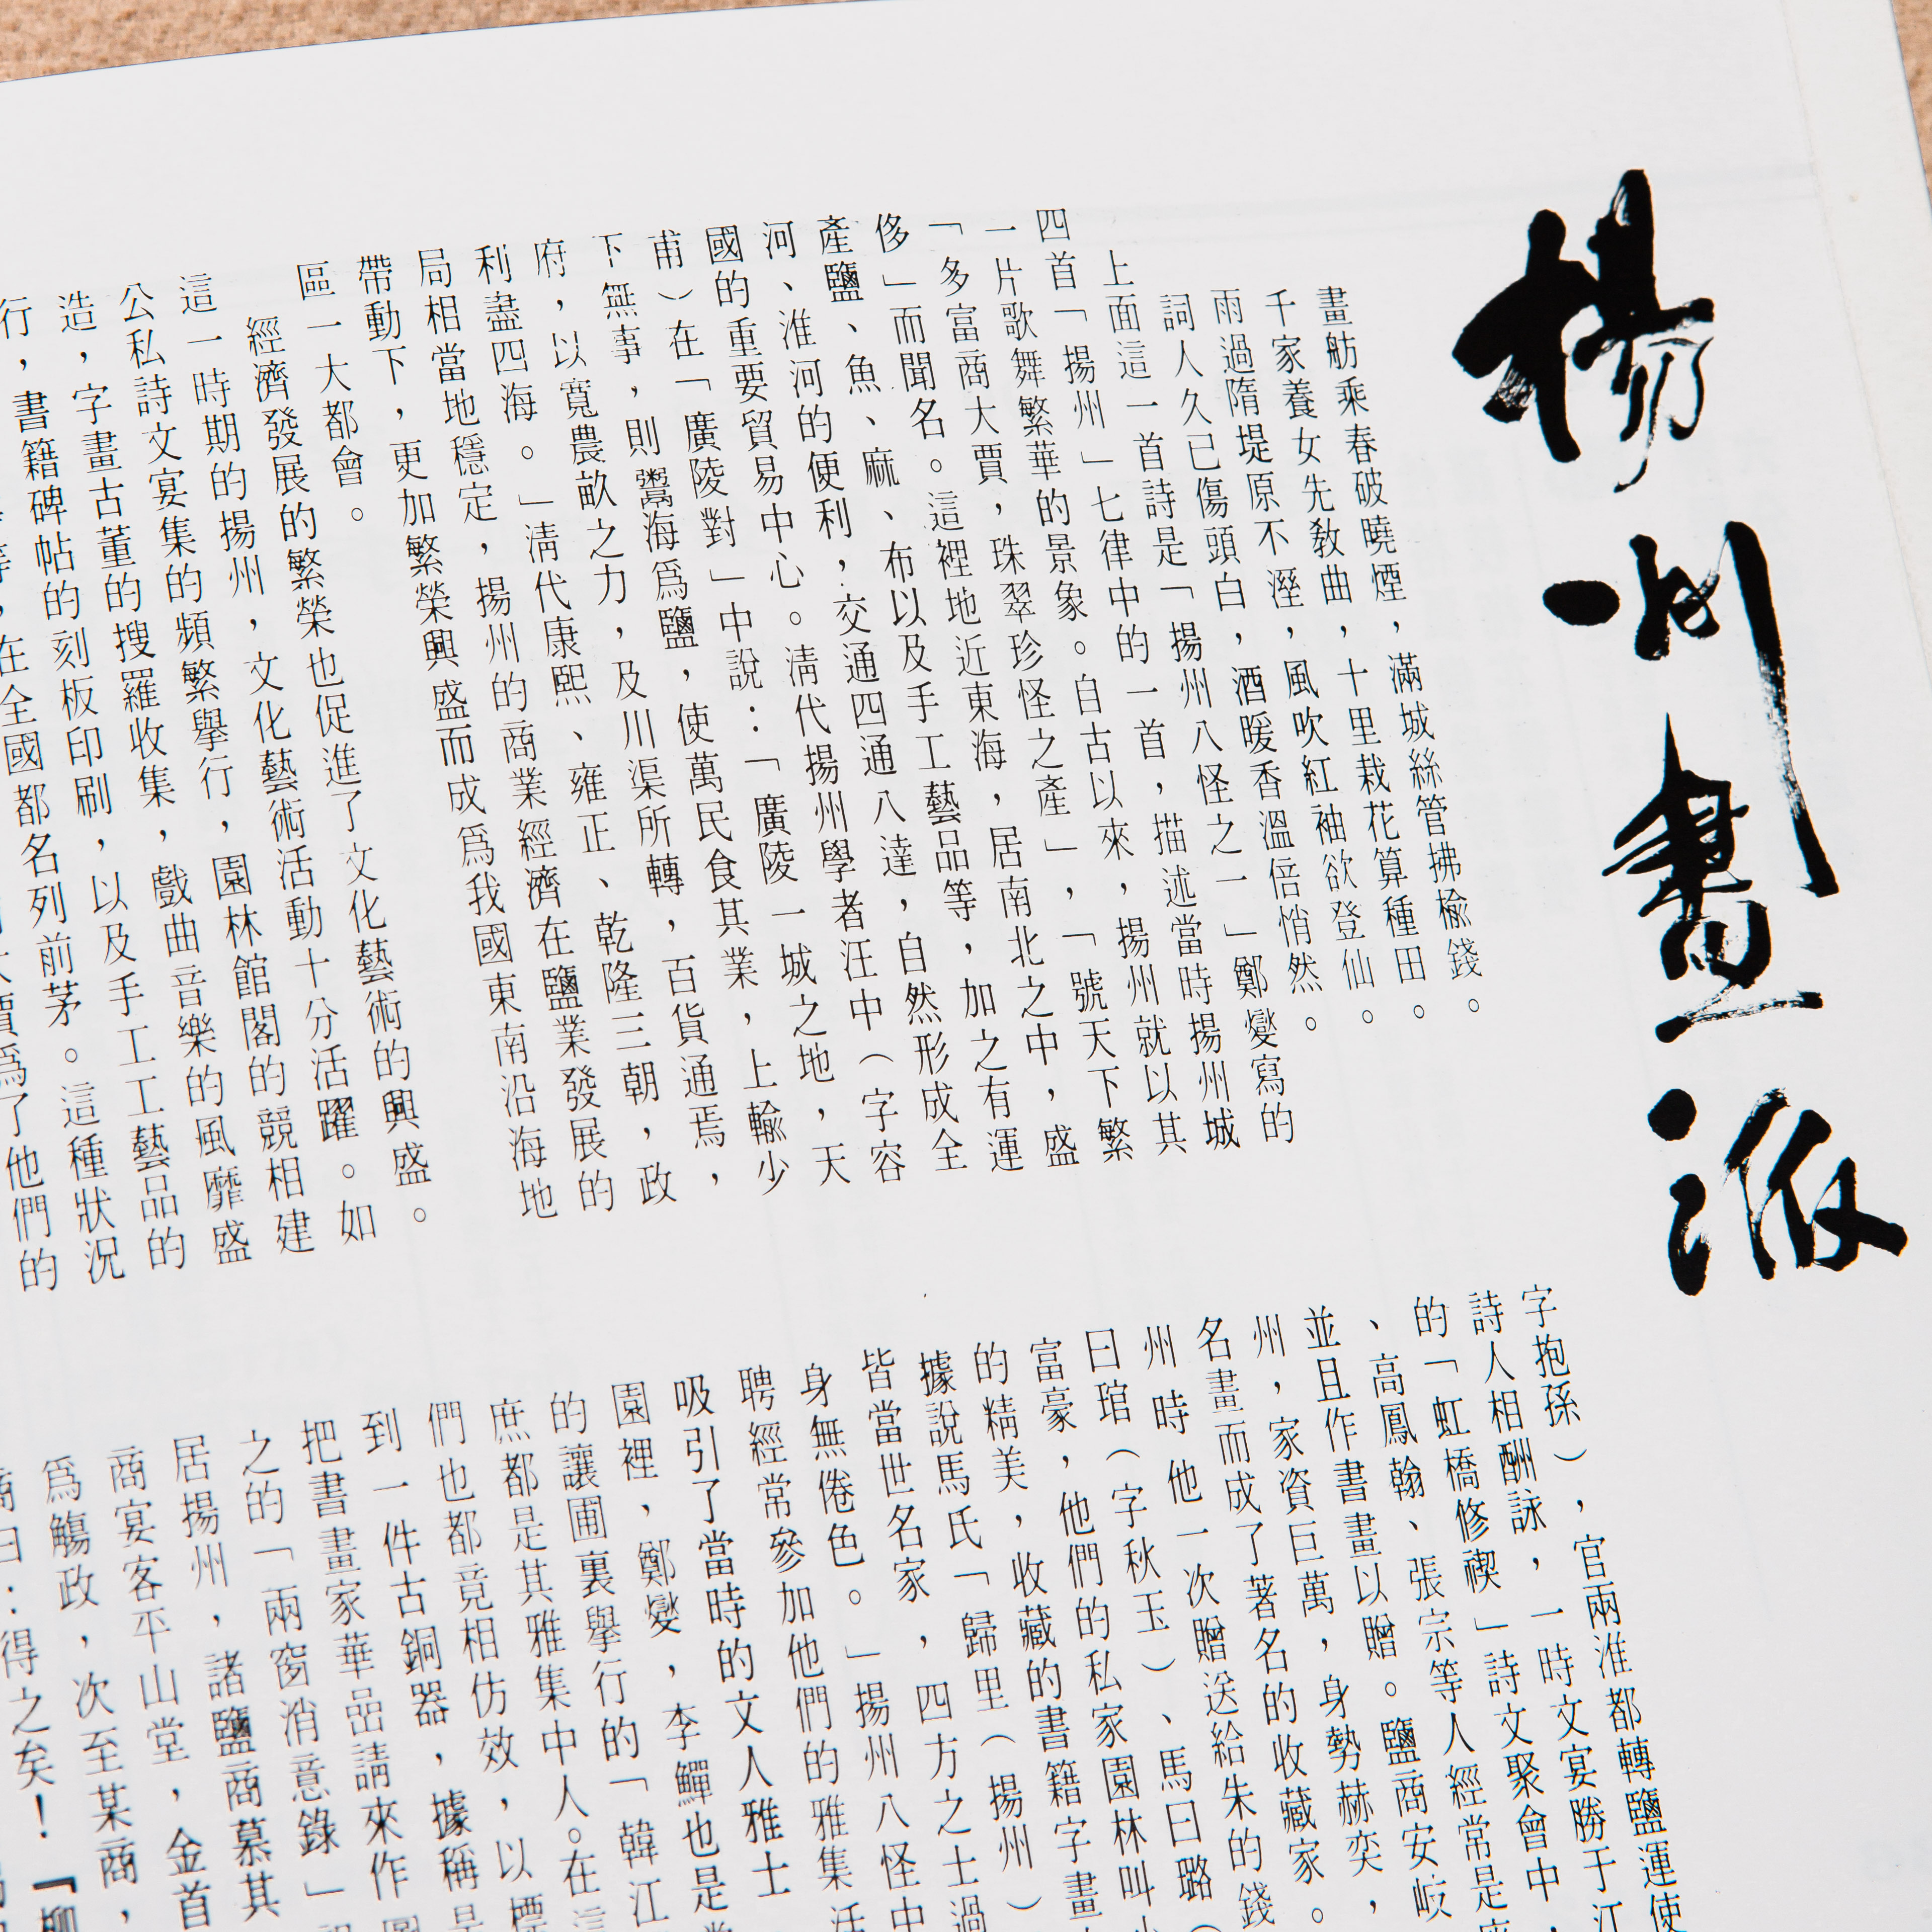 揚州畫派
畫舫乘春破曉煙,滿城絲管拂楡錢。
千家養女先敎曲,十里栽花算種田。
雨過隋堤原不溼,風吹紅袖欲登仙。
詞人久已傷頭白,酒暖香溫倍悄然。
上面這一首詩是「揚州八怪之一」鄭燮寫的
四首「揚州」七律中的一首,描述當時揚州城
一片歌舞繁華的景象。自古以來,揚州就以其
「多富商大賈,珠翠珍怪之產」,「號天下繁
侈」而聞名。這裡地近東海,居南北之中,盛
產鹽、魚、麻、布以及手工藝品等,加之有運
河、淮河的便利,交通四通八達,自然形成全
國的重要貿易中心。淸代揚州學者汪中(字容
甫)在「廣陵對」中說:「廣陵一城之地,天
下無事,則鬻海爲鹽,使萬民食其業,上輸少
府,以寬農畝之力,及川渠所轉,百貨通焉,
利盡四海。」淸代康熙、雍正、乾隆三朝,政
局相當地穩定,揚州的商業經濟在鹽業發展的
帶動下,更加繁榮興盛而成爲我國東南沿海地
區一大都會。
經濟發展的繁榮也促進了文化藝術的興盛。
這一時期的揚州,文化藝術活動十分活躍。如
公私詩文宴集的頻繁舉行,園林館閣的競相建
造,字畫古董的搜羅收集,戲曲音樂的風靡盛
行,書籍碑帖的刻板印刷,以及手工工藝品的
等,在全國都名列前茅。這種狀況
賈爲了他們的
字抱孫),官兩淮都轉鹽運使
詩人相酬詠,一時文宴勝于江
的「虹橋修禊」詩文聚會中,
、高鳳翰、張宗等人經常是
並且作書畫以贈。鹽商安岐
州,家資巨萬,身勢赫奕,
名畫而成了著名的收藏家。
州時,他一次贈送給朱的錢
曰琯(字秋玉)、馬曰璐(
富豪,他們的私家園林叫
的精美,收藏的書籍字畫
據說馬氏「歸里(揚州)
皆當世名家,四方之士過
身無倦色。」揚州八怪中
聘經常參加他們的雅集
吸引了當時的文人雅士
園裡,鄭燮,李鱓也是
的讓圃裏舉行的「韓江
庶都是其雅集中人。在
們也都竟相仿效,以標
到一件古銅器,據稱是
把書畫家華嵒請來作
之的「兩窗消意錄」
居揚州,諸鹽商慕其
商宴客平山堂,金首
爲觴政,次至某商,
曰:得之矣!『柳